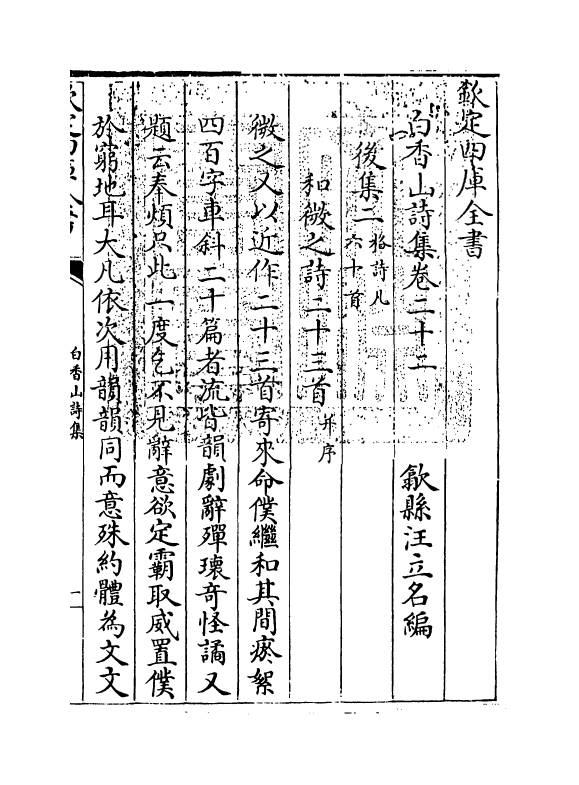 欽定四庫全書
白香山詩集卷二十二
歙縣汪立名編
後集二格詩凡
六十首
和微之詩二十三首并序
微之又以近作二十三首寄來命僕繼和其間瘀絮
四百字車斜二十篇者流皆韻劇辭殫瓌奇怪譎又
題云奉煩只此一度乞不見辭意欲定霸取威置僕
於窮地耳大凡依次用韻韻同而意殊約體為文文
白香山詩集
一